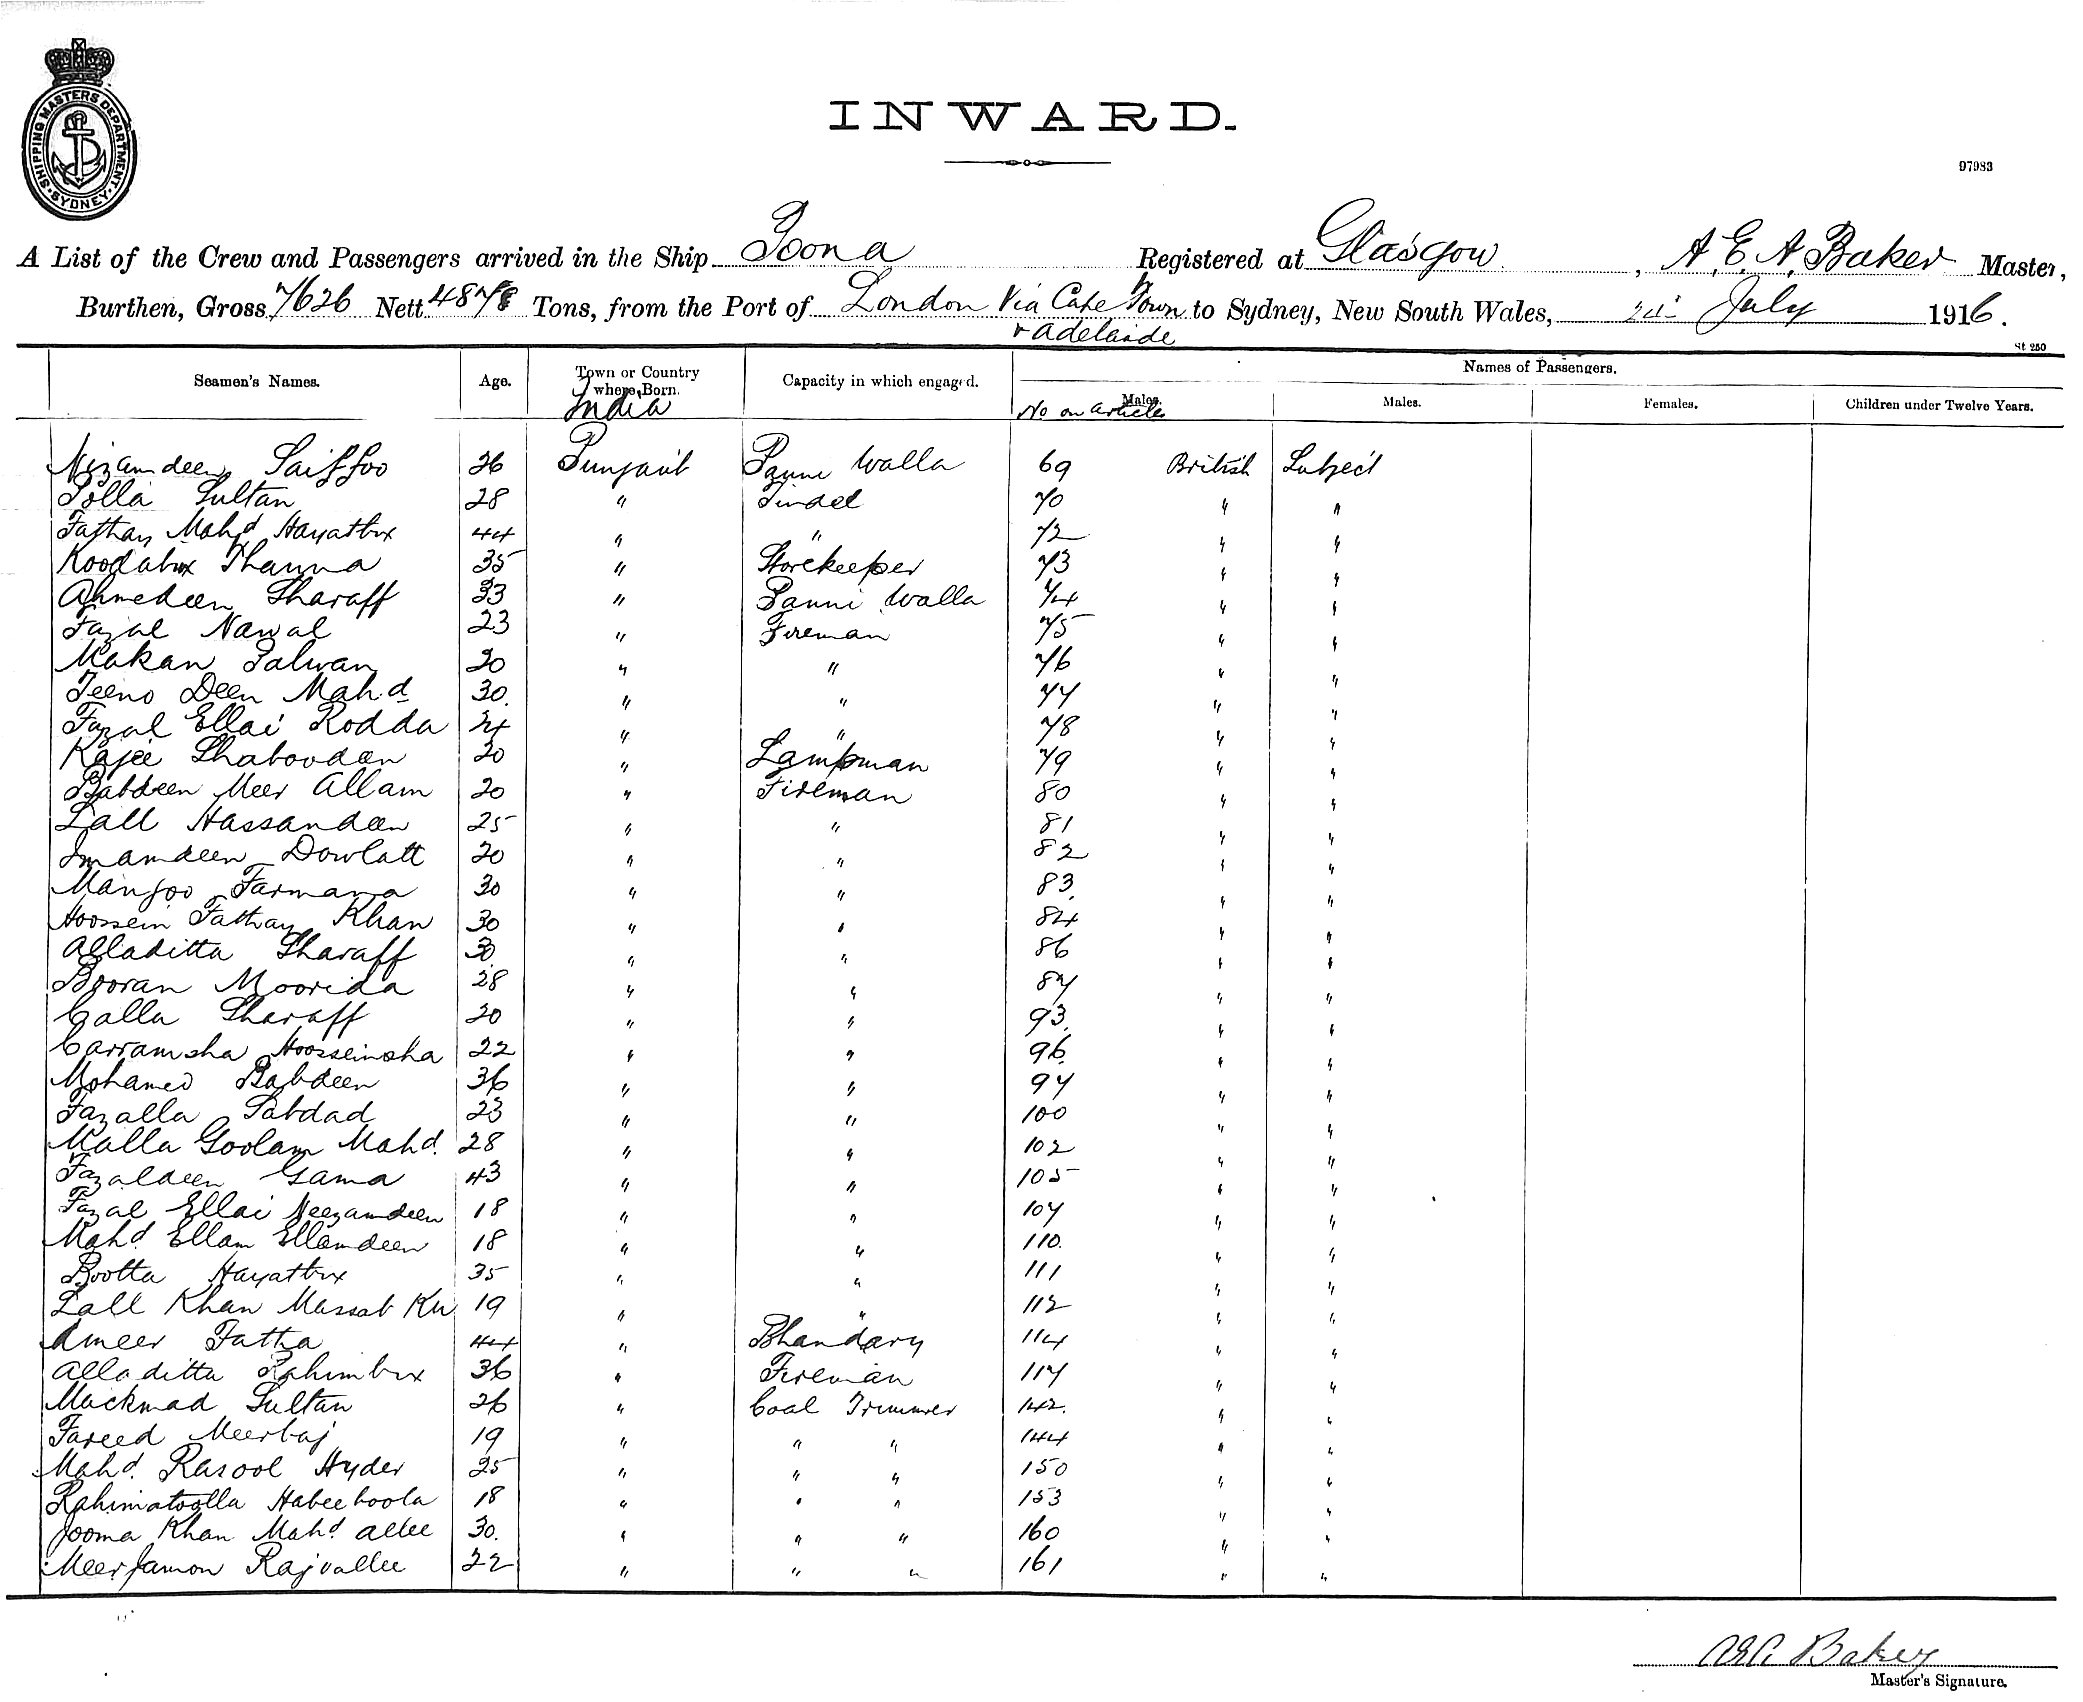 SHIPPING MASTERS DEPARTMENT
SYDNEY
INWARD.
97983
A List of the Crew and Passengers arrived in the Ship Poona Registered at Glasgow, A. E. A. Baker Master,
Burthen, Gross 7626 Nett 4878 Tons, from the Port of London Via Cape Town to Sydney, New South Wales, July 1916.
& Adelaide
St 250
Seamen's Names. Age. Town or Country where Born. Capacity in which engaged. Names of Passengers.
India No on Article Males. Males. Females. Children under Twelve Years.
Nizamdeen Saiffoo 26 Punjaub Panni Walla 69 British Subject
Polla Sultan 28 " Tindel 70 " "
Fathay Mahd Hayatbux 44 " " 72 " "
Koodabux Thanna 35 " Storekeeper 73 " "
Ahmedeen Sharaff 33 " Panni Walla 74 " "
Fazal Nawal 23 " Fireman 75 " "
Makan Palwan 20 " " 76 " "
Jeeno Deen Mahd 30. " " 77 " "
Fazal Ellai Rodda 24 " " 78 " "
Kajee Shaboodeen 20 " Lampman 79 " "
Babdeen Meer Allam 20 " Fireman 80 " "
Lall Hassandeen 25 " " 81 " "
Imamdeen Dowlatt 20 " " 82 " "
Mangoo Farmana 30 " " 83. " "
Hoossein Fathay Khan 30 " " 84 " "
Alladitta Sharaff 30 " " 86 " "
Booran Moorida 28 " " 87 " "
Calla Sharaff 20 " " 93. " "
Carramsha Hoosseinsha 22 " " 96. " "
Mohamed Babdeen 36 " " 97 " "
Fazalla Sabdad 23 " " 100 " "
Malla Goolam Mahd. 28 " " 102 " "
Fazaldeen Gama 43 " " 105 " "
Fazal Ellai Neezamdeen 18 " " 107 " "
Mahd. Ellam Ellamdeen 18 " " 110. " "
Bootta Hayatbux 35 " " 111 " "
Lall Khan Massab Kn 19 " " 112 " "
Ameer Fatta 44 " Bhandary 114 " "
Alladitta Rahimbux 36 " Fireman 117 " "
Mackmad Sultan 26 " Coal Trimmer 142. " "
Fareed Meerbaj 19 " " " 144 " "
Mahd. Rasool Hyder 25 " " " 150 " "
Rahimatoolla Habeeboola 18 " " " 153 " "
Jooma Khan Mahd allee 30. " " " 160 " "
Meerjamon Rajvallee 22 " " " 161 " "
A E A Baker
Master's Signature.